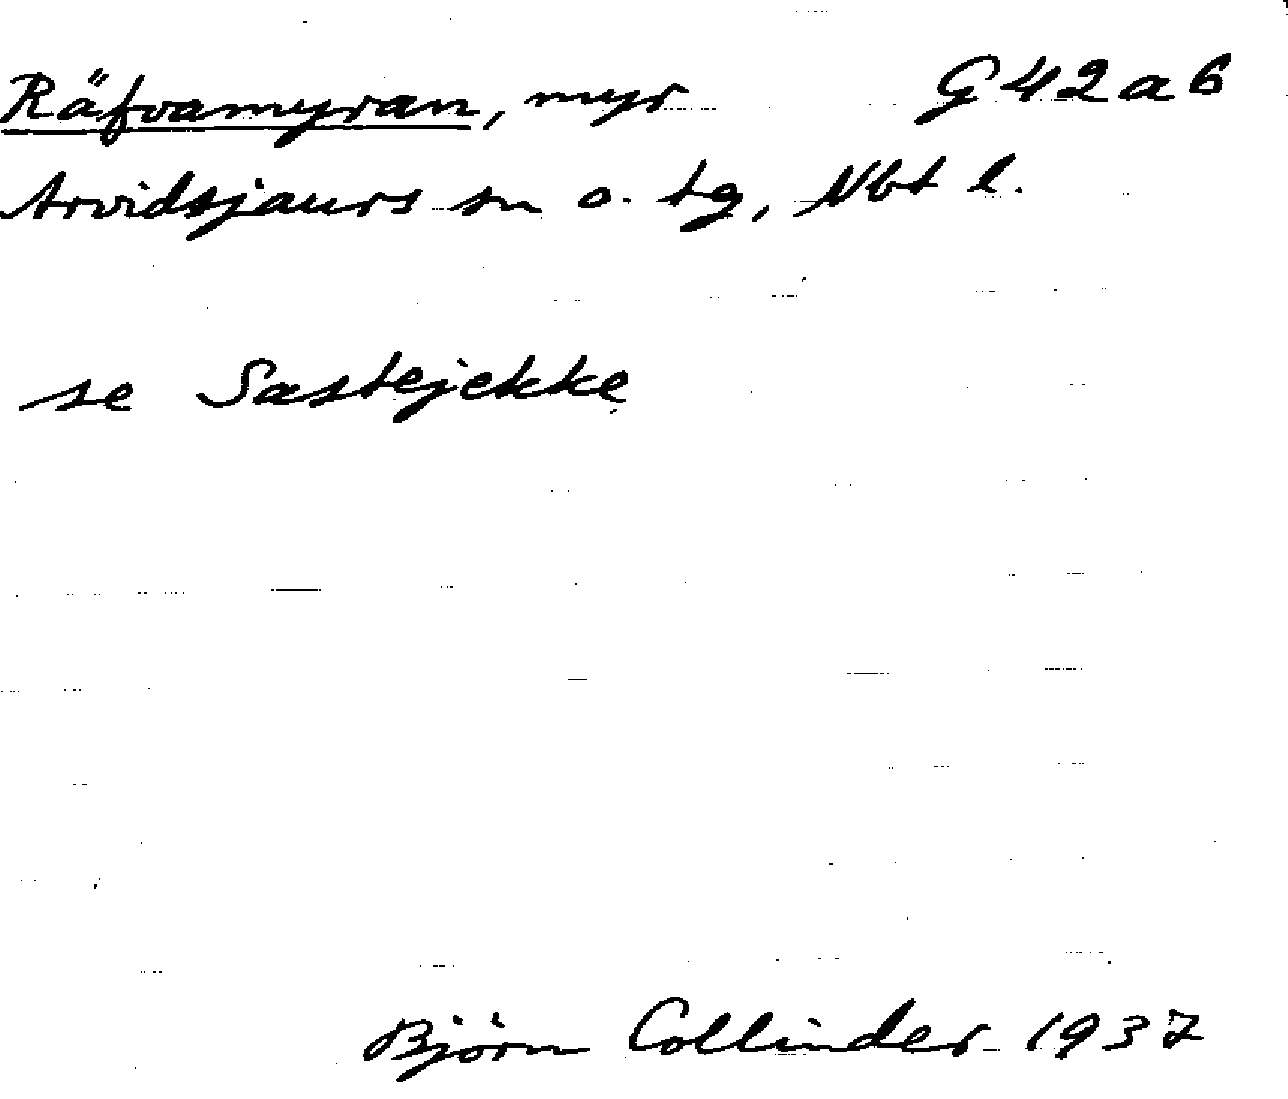 Räfvamyran, myr G42a6
Arvidsjaurs sn o. tg, Nbt l.
se Sastejekke
Björn Collinder 1937